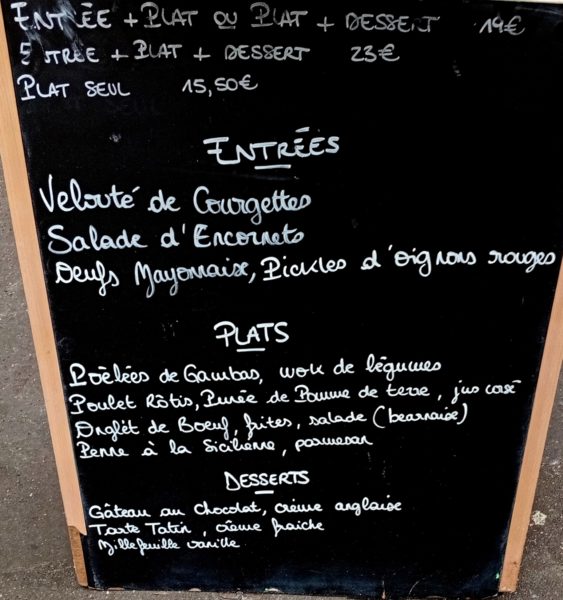 ENTRÉE + PLAT OU PLAT + DESSERT 19€
ENTRÉE + PLAT + DESSERT 23€
PLAT SEUL 15,50€
ENTRÉES
Velouté de Courgettes
Salade d'Encornets
Oeufs Mayonnaise, Pickles d'oignons rouges
PLATS
Poêlées de Gambas, wok de légumes
Poulet Rôtis, Purée de Pomme de terre, jus corsé
Onglet de Boeuf, frites, salade (bearnaise)
Penne à la Sicilienne, parmesan
DESSERTS
Gâteau au Chocolat, crème anglaise
Tarte Tatin, crème fraiche
Millefeuille vanille